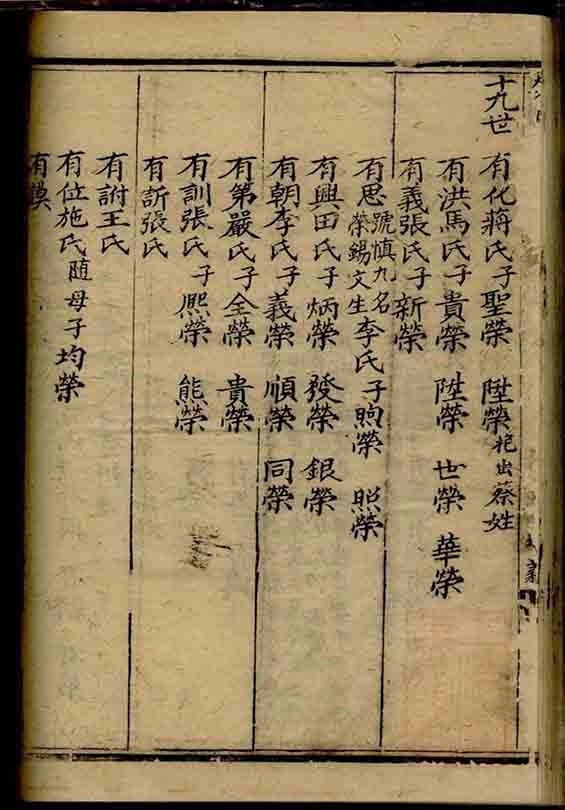 十九世
有化蔣氏子聖榮 陞榮祀出蔡姓
有洪馬氏子貴榮 陞榮 世榮 華榮
有義張氏子新榮
有思號慎九名榮錫文生李氏子煦榮 照榮
有興田氏子炳榮 發榮 銀榮
有朝李氏子義榮 順榮 同榮
有第嚴氏子全榮 貴榮
有訓張氏子熙榮 熊榮
有訢張氏
有詂王氏
有位施氏隨母子均榮
有謨